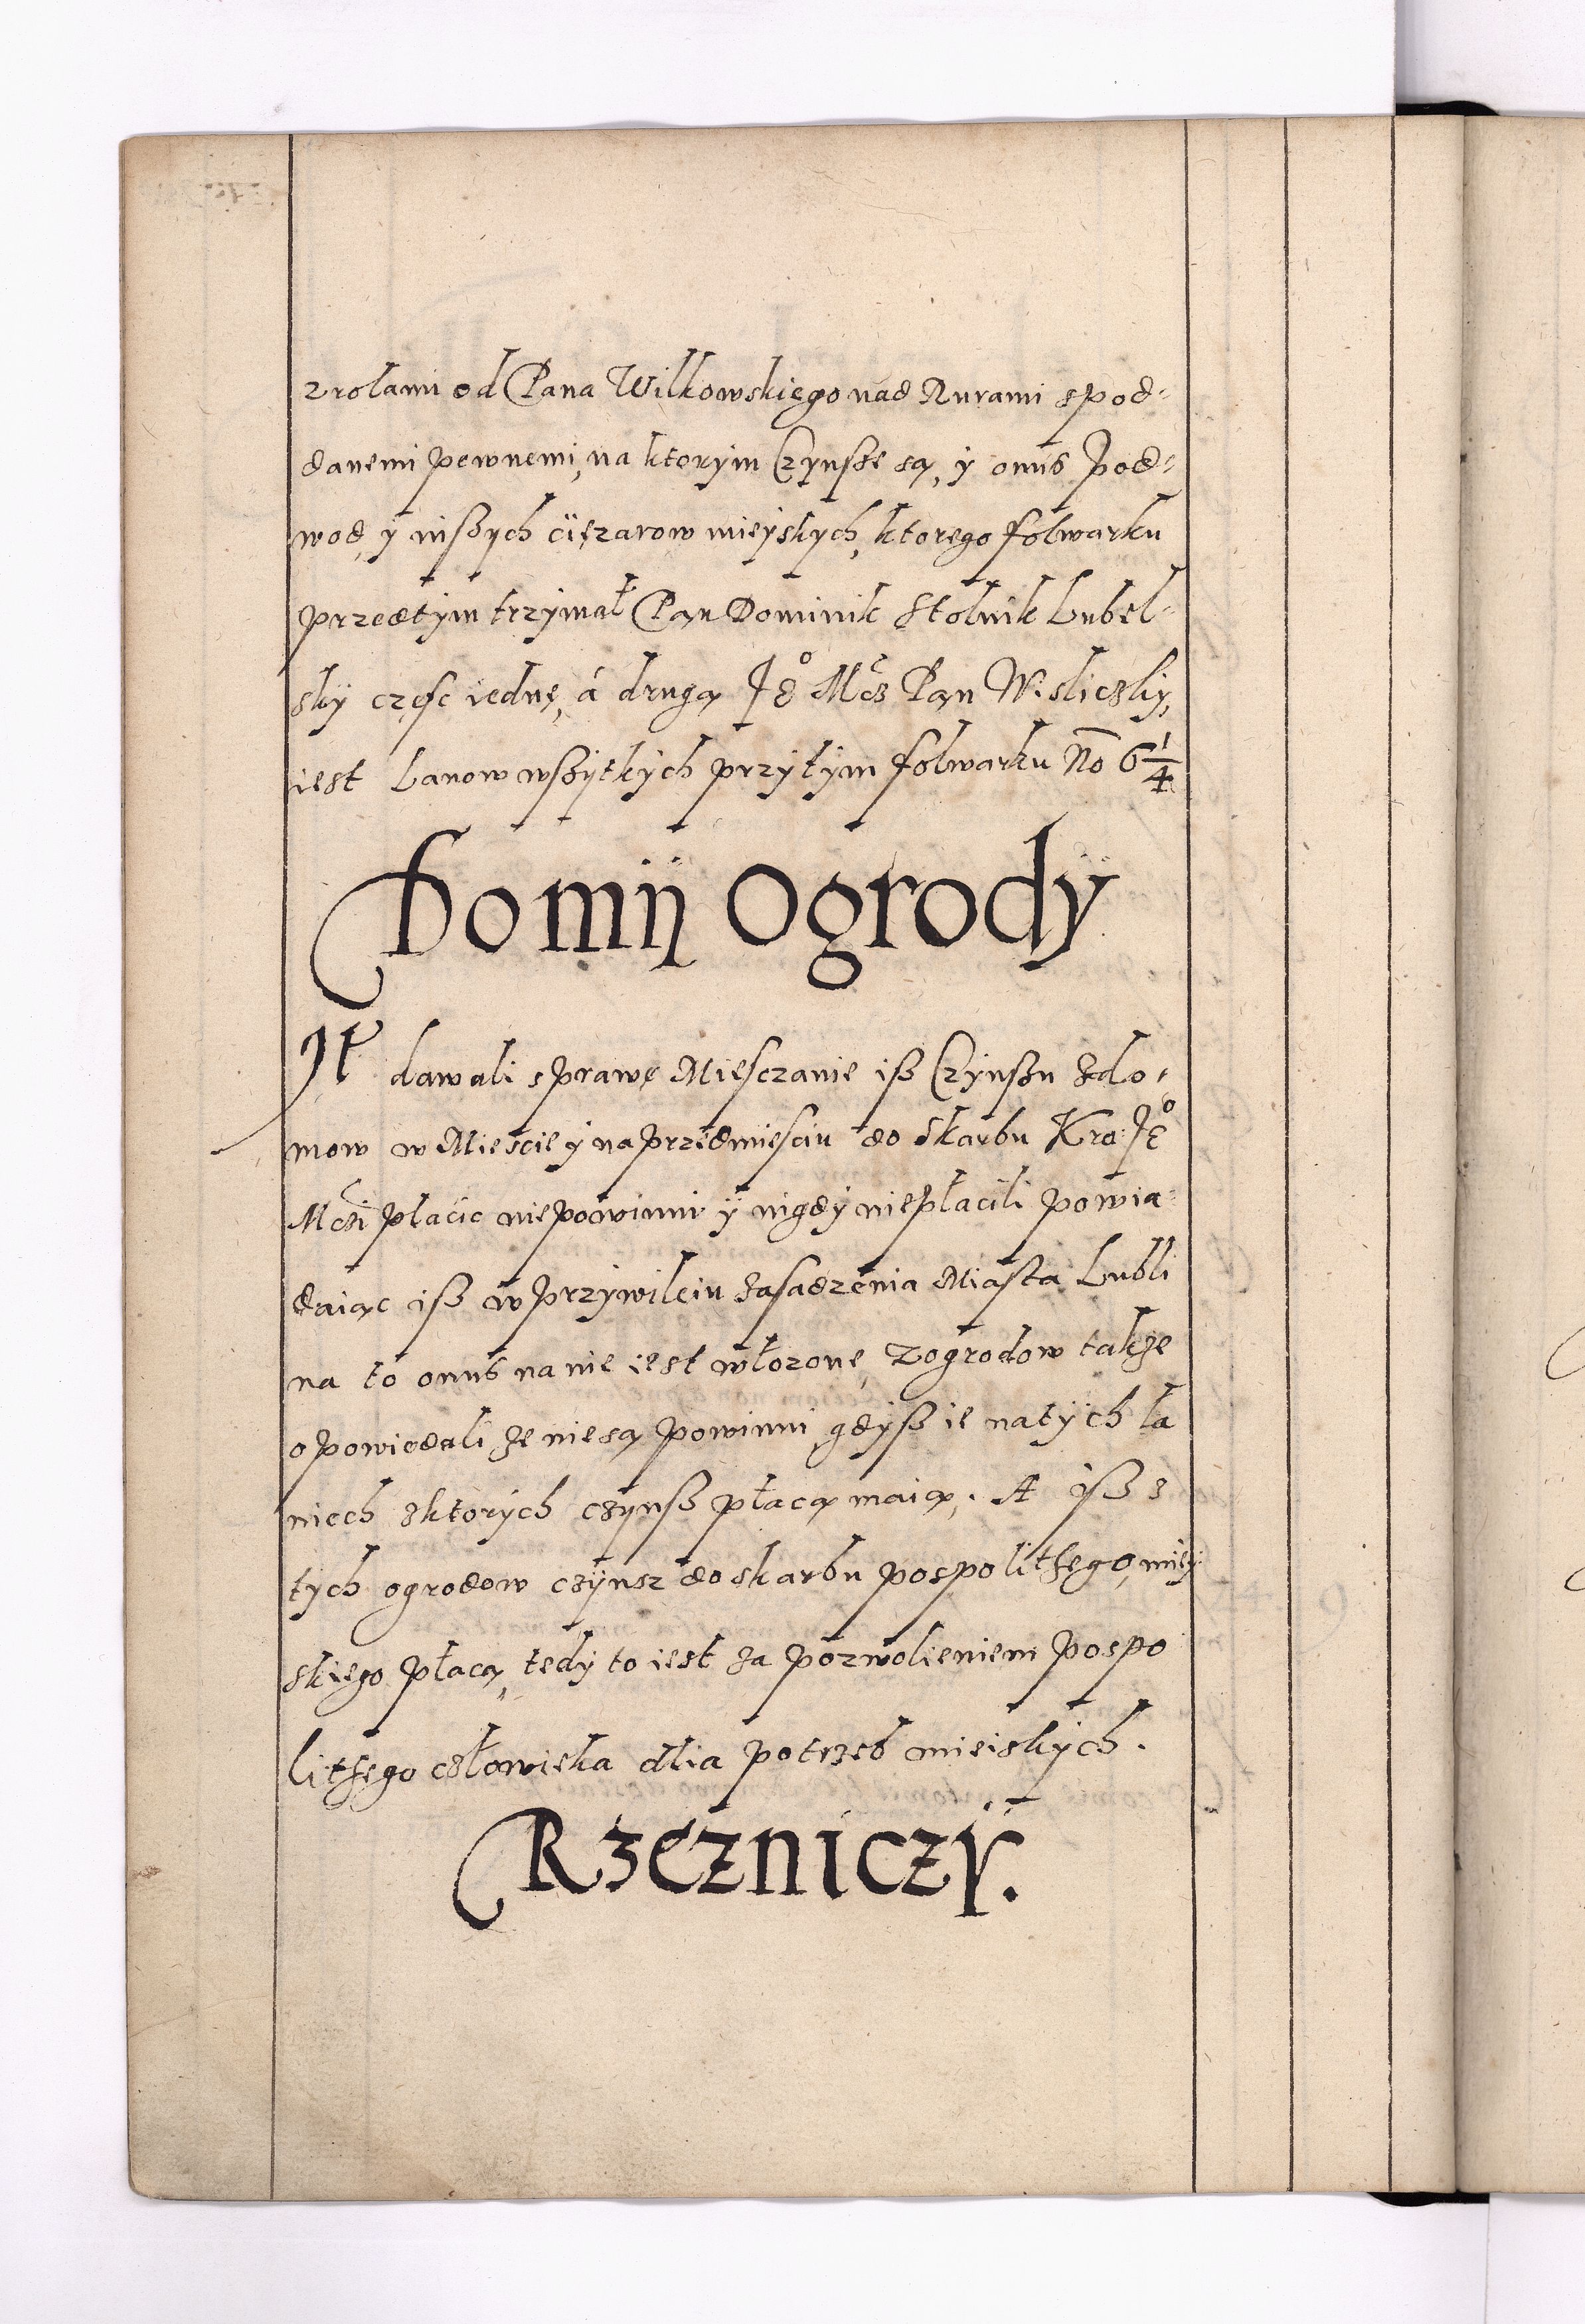 z rolami od Pana Wilkowskiego nad Rurami s pod-
danemi pewnemi, na ktorym Czynsze są, ÿ onus Pod-
wod, ÿ inßÿch ciężarow mieÿskÿch, ktorego folwarku
przedtÿm trzÿmał Pan Dominik Stolnik Lubel-
skÿ częsc iednę, á drugą Je° Mcz Pan Wisliczkÿ,
iest Łanow wßÿtkÿch przÿtÿm folwarku No 6 1/4
Domÿ Ogrodÿ
It dawali sprawę Miesczanie iß Czÿnßu zdo-
mow w Miescie ÿ na przedmiesciu do Skarbu Kro: Je°
Mczi płacic niepowinni ÿ nigdÿ niepłacili powia-
daiąc iß w przÿwileiu zasadzenia Miasta Lubli
na to onus na nie iest włozone, Z ogrodow takze
opowiedali ze niesą powinni gdÿß ie natÿch ła
niech z ktorÿch czÿnß płacą maią. A iß z
tÿch ogrodow czÿnsz do skarbu pospolithego, mieÿ
skiego płacą, tedÿ to iest za pozwolieniem pospo
lithego człowieka dlia potrzeb mieiskÿch.
Rzezniczÿ.